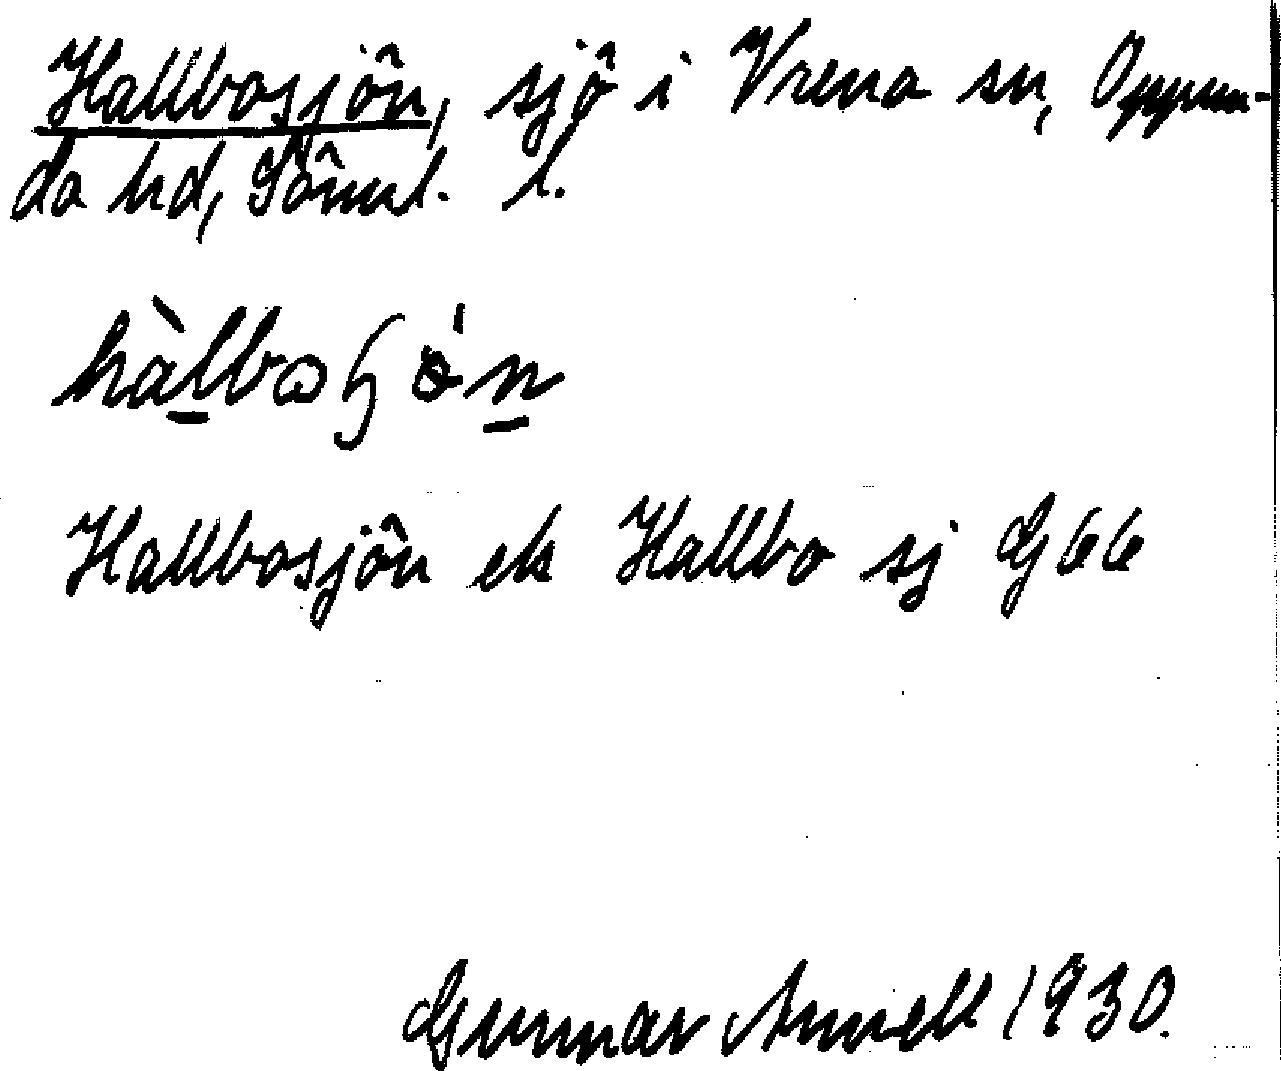 Hallbosjön, sjö i Vrena sn, Oppun-
da hd, Söml. l.
Hallbosjön ek Hallbo sj G 66
Gunnar Annell 1930.